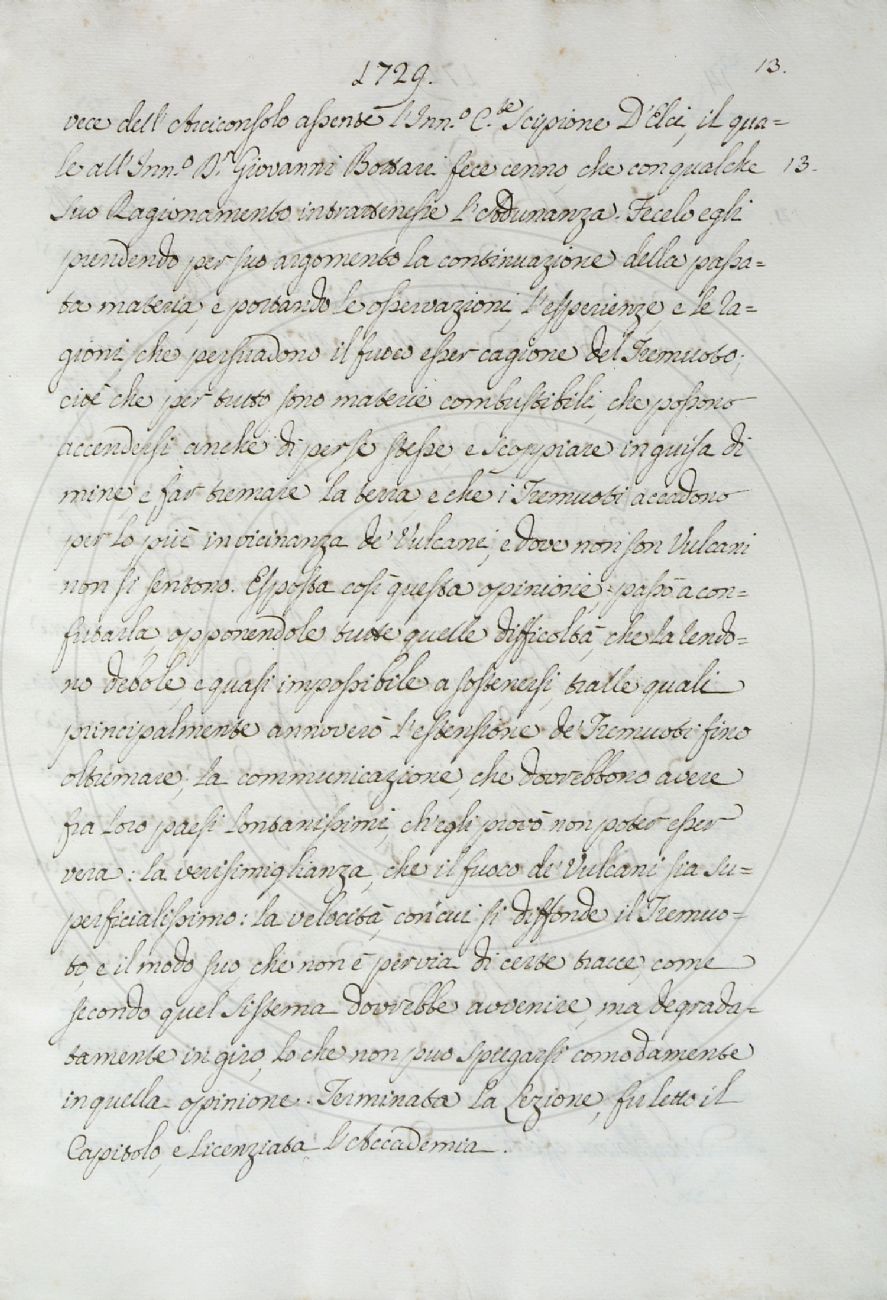 1729.
13.
vece dell'Arciconsolo assente l'Inn.º C.te Scipione D'Elci, il qua=
le all'Inn.º D.r Giovanni Bottari fece cenno, che con qualche
13.
suo Ragionamento intrattenesse l'Adunanza. Fecelo egli
prendendo per suo argomento la continuazione della passa=
ta materia, e portando le osservazioni, l'esperienze, e le ra=
gioni, che persuadono il fuoco esser cagione del Tremuoto;
cioè che per tutto sono materie combustibili, che possono
accendersi anche di per se stesse e scoppiare in guisa di
mine, e far tremare la terra e che i Tremuoti accadono
per lo più in vicinanza de' Vulcani, e dove non son Vulcani
non si sentono. Esposta così questa opinione, passò a con=
futarla, opponendole tutte quelle difficoltà, che la rendo=
no debole, e quasi impossibile a sostenersi, tralle quali
principalmente annoverò l'estensione de' Tremuoti fino
oltremare; la communicazione, che dovrebbono avere
fra loro paesi lontanissimi, ch'egli provò non poter esser
vera: la verisimiglianza, che il fuoco di Vulcani sia su=
perficialissimo: la velocità, con cui si diffonde il Tremuo=
to, e il modo suo che non è per via di certe tracce, come
secondo quel sistema dovrebbe avvenire, ma degrada=
tamente in giro, lo che non può spiegarsi comodamente
in quella opinione. Terminata la Lezione, fu letto il
Capitolo, e licenziata l'Accademia.